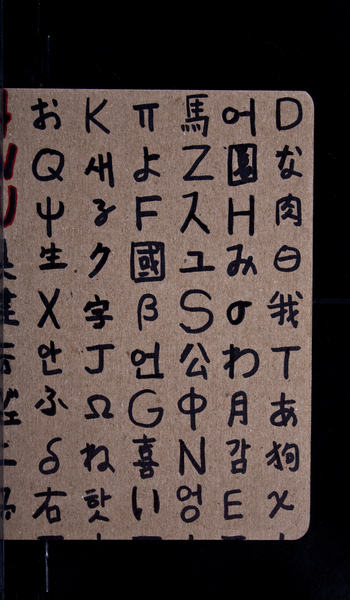 お K π 馬 어 D
Q 새 よ Z 圓 な
ψ る F 스 H 肉
生 ク 國 그 み
X 字 β S σ 我
안 J 언 公 わ T
ふ Ω G 中 月 あ
δ ね 喜 N 감 狗
右 핫 い 엉 E χ